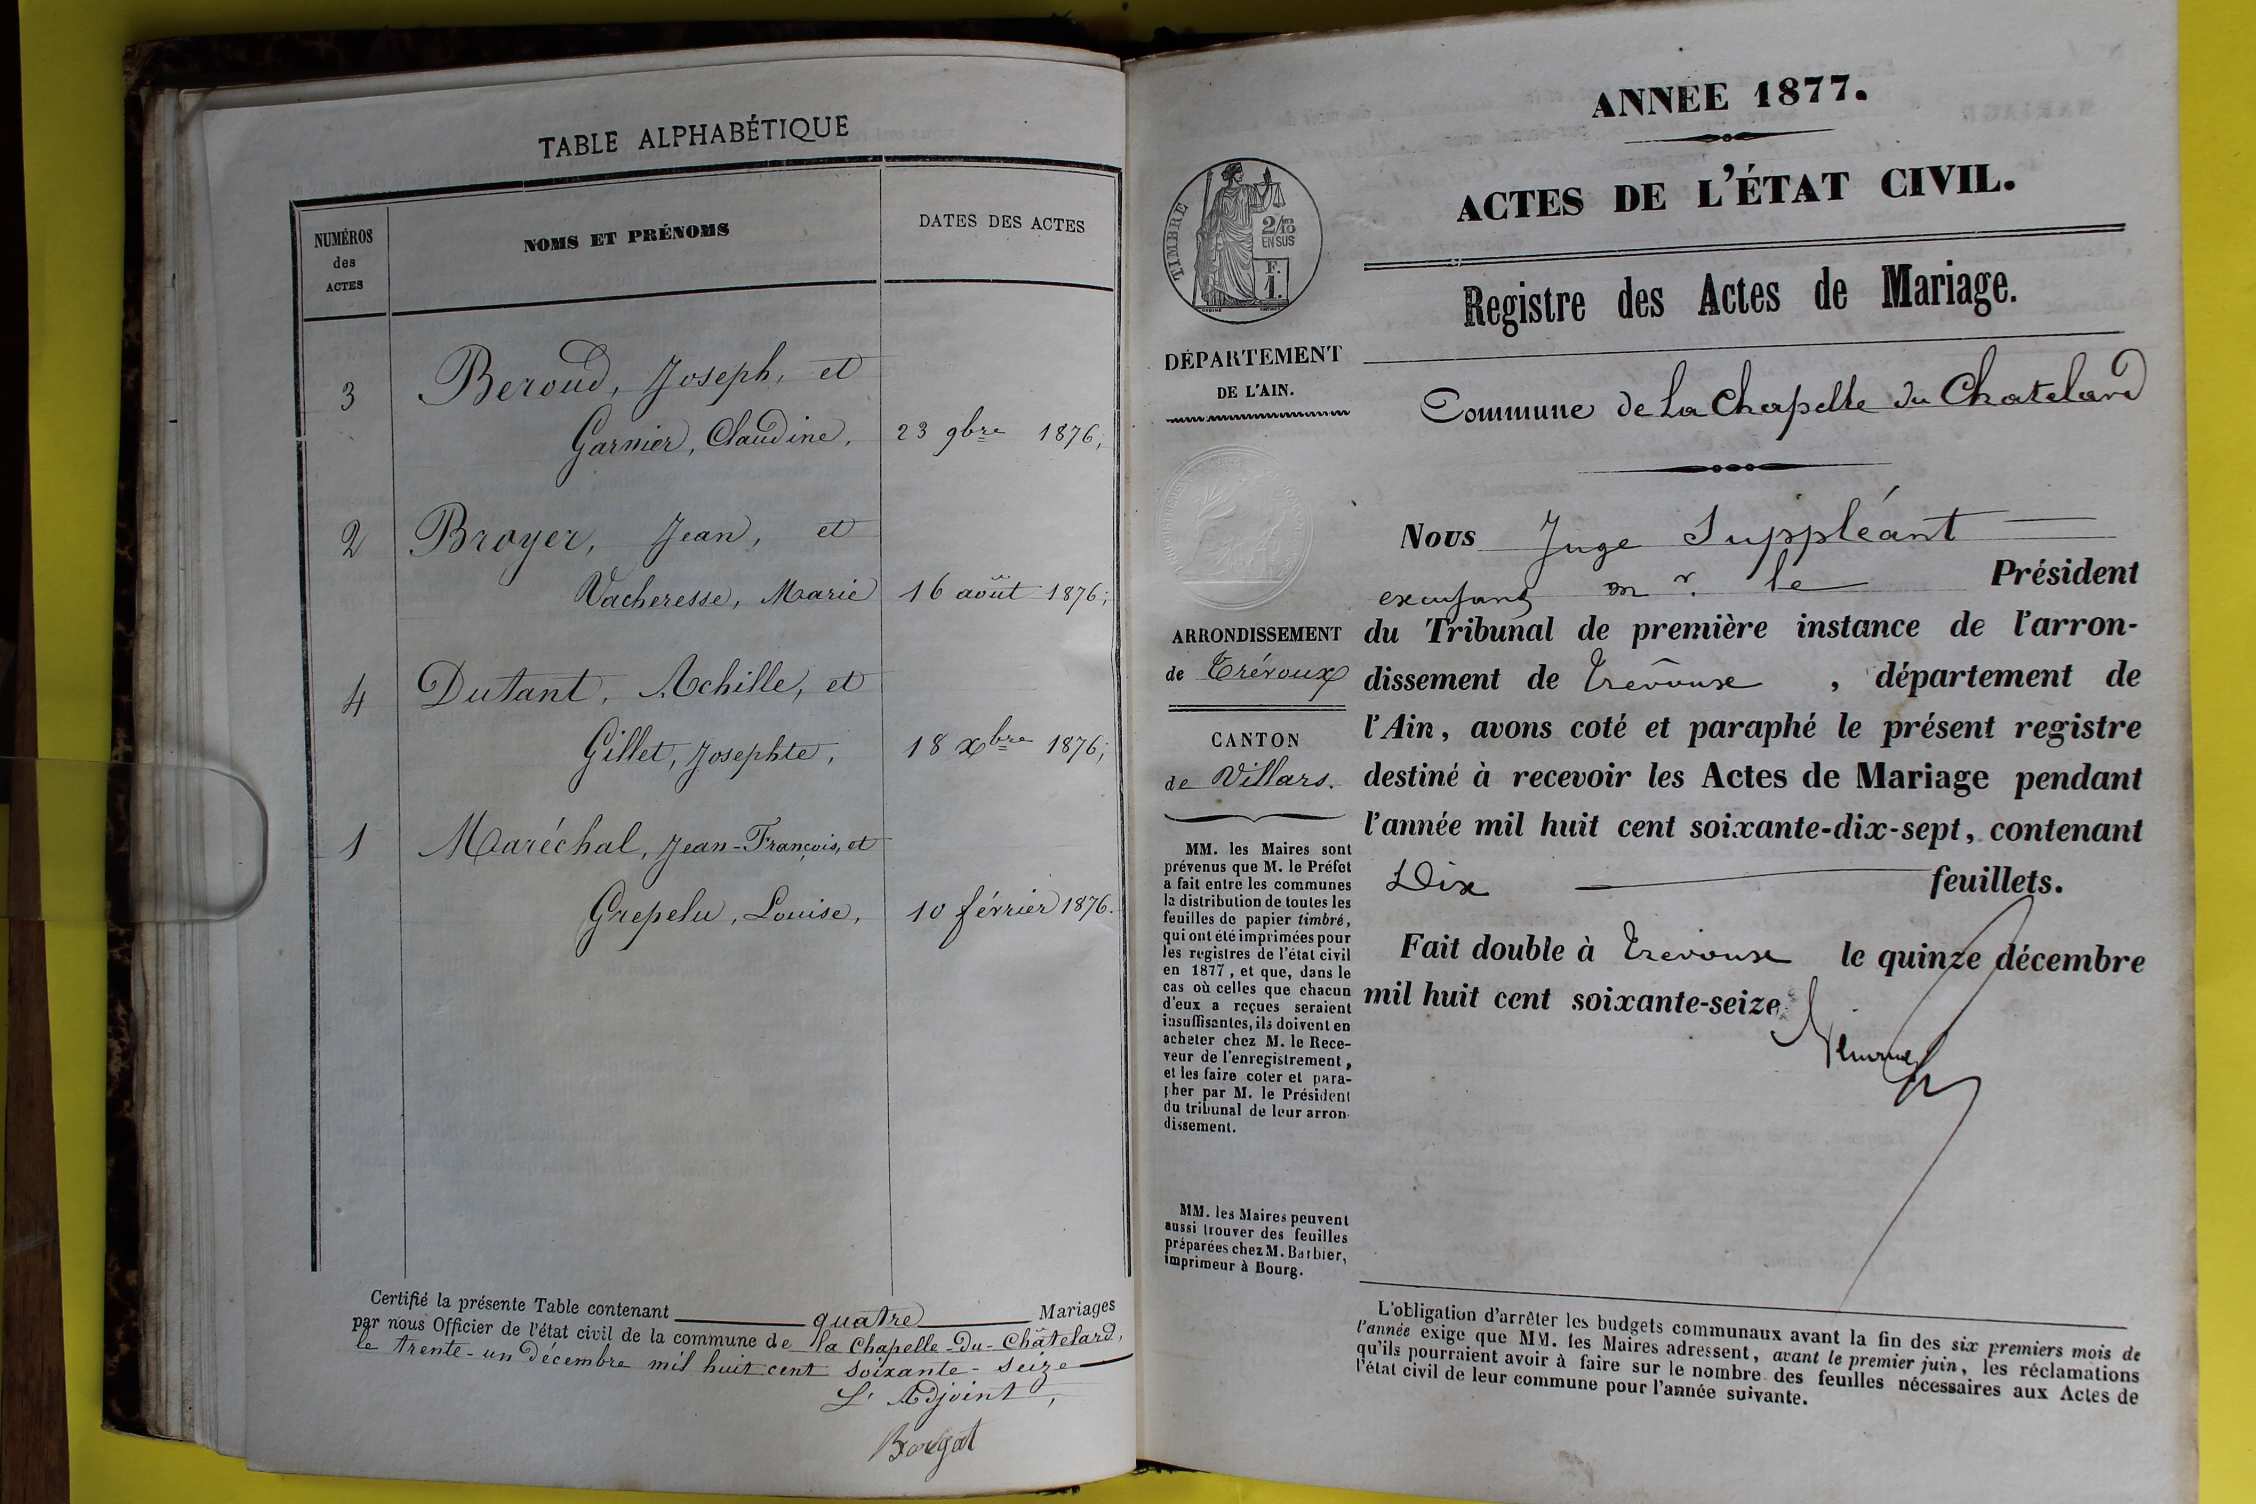 TABLE ALPHABÉTIQUE
NUMÉROS
des
ACTES
NOMS ET PRÉNOMS
DATES DES ACTES
3 Beroud, Joseph, et
Garnier, Claudine, 23 9bre 1876;
2 Broyer, Jean, et
Vacheresse, Marie 16 août 1876;
4 Dutant, Achille, et
Gillet, Josephte, 18 xbre 1876;
1 Maréchal, Jean-François, et
Grepelu, Louise, 10 février 1876.
Certifié la présente Table contenant quatre Mariages
par nous Officier de l'état civil de la commune de la Chapelle-du-Châtelard,
le trente-un Décembre mil huit cent soixante-seize
L'Adjoint,
ANNÉE 1877.
ACTES DE L'ÉTAT CIVIL.
Registre des Actes de Mariage.
TIMBRE
2/10
EN SUS
F.
1.
DÉPARTEMENT
DE L'AIN.
Commune de La Chapelle du Chatelard
Nous Juge Suppléant
m r. le Président
du Tribunal de première instance de l'arron-
dissement de Trévoux, département de
l'Ain, avons coté et paraphé le présent registre
destiné à recevoir les Actes de Mariage pendant
l'année mil huit cent soixante-dix-sept, contenant
Dix feuillets.
Fait double à Trevoux le quinze décembre
mil huit cent soixante-seize
ARRONDISSEMENT
de Trévoux
CANTON
de Villars.
MM. les Maires sont
prévenus que M. le Préfet
a fait entre les communes
la distribution de toutes les
feuilles de papier timbré,
qui ont été imprimées pour
les registres de l'état civil
en 1877, et que, dans le
cas où celles que chacun
d'eux a reçues seraient
insuffisantes, ils doivent en
acheter chez M. le Rece-
veur de l'enregistrement,
et les faire coter et para-
pher par M. le Président
du tribunal de leur arron-
dissement.
MM. les Maires peuvent
aussi trouver des feuilles
préparées chez M. Barbier,
imprimeur à Bourg.
L'obligation d'arrêter les budgets communaux avant la fin des six premiers mois de
l'année exige que MM. les Maires adressent, avant le premier juin, les réclamations
qu'ils pourraient avoir à faire sur le nombre des feuilles nécessaires aux Actes de
l'état civil de leur commune pour l'année suivante.